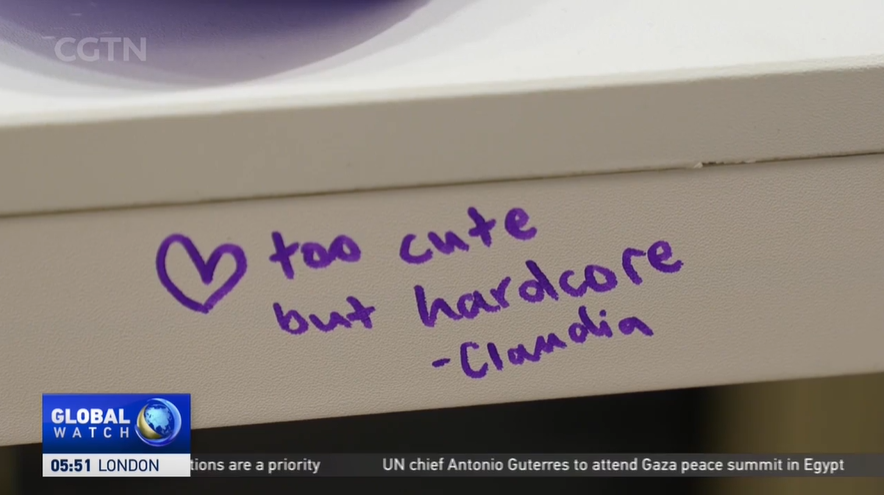 CGTN
too cute
but hardcore
-Claudia
GLOBAL
WATCH
05:51 LONDON
tions are a priority
UN chief Antonio Guterres to attend Gaza peace summit in Egypt